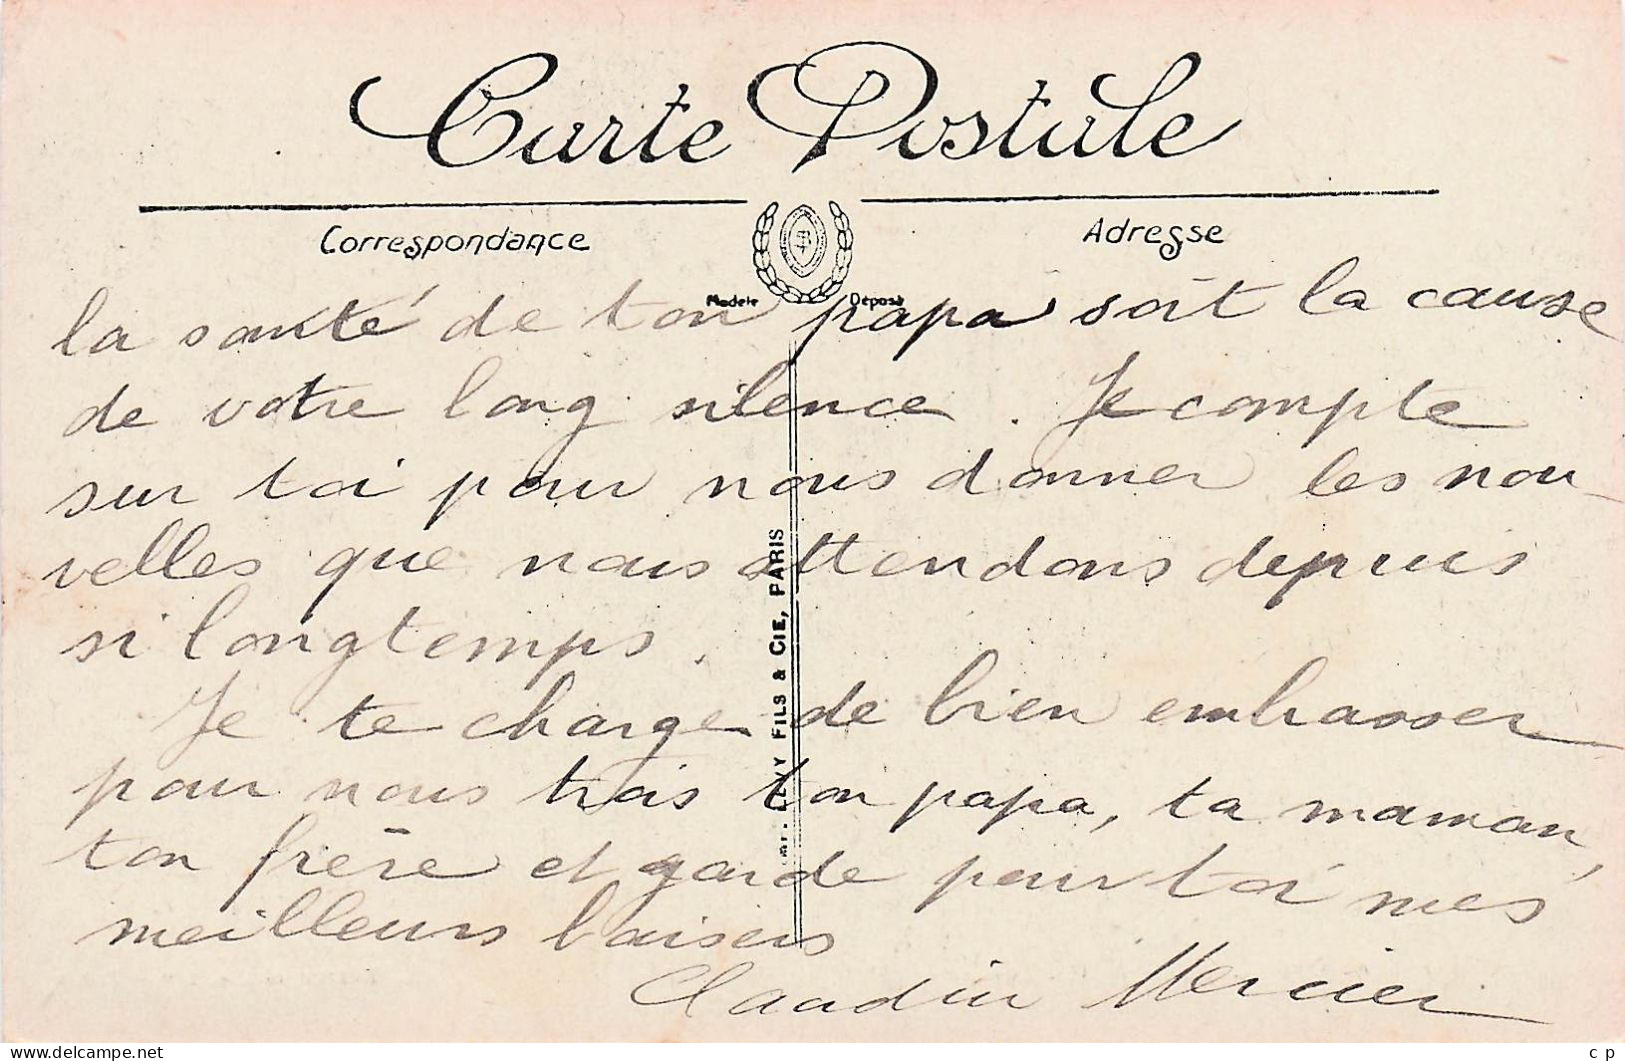 Carte Postale
Correspondance
Adresse
Modèle Déposé
la santé de ton papa soit la cause
de votre long silence. Je compte
sur toi pour nous donner les nou-
velles que nous attendons depuis
si longtemps.
Je te charge de bien embrasser
pour nous trois ton papa, ta maman,
ton frère et garde pour toi mes
meilleurs baisers
Claudin Mercier
LÉVY FILS & CIE, PARIS
delcampe.net
c p